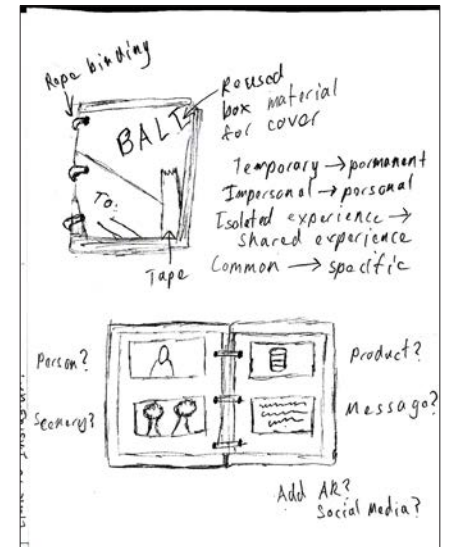 Rope binding
Reused
box material
for cover
BALI
To:
Tape
Temporary → permanent
Impersonal → personal
Isolated experience →
shared experience
Common → specific
Person?
Scenery?
Product?
Message?
Add AR?
Social Media?